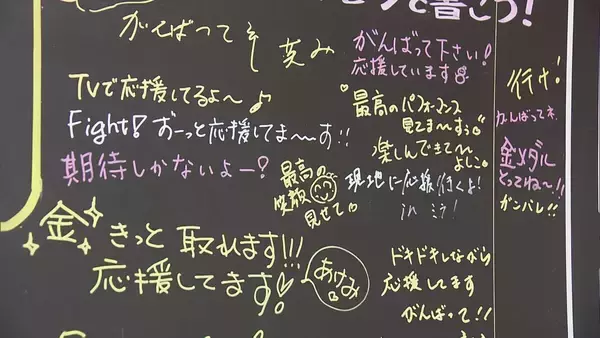 で書こう!
がんばって
笑み
がんばって下さい!
応援しています
行け!
TVで応援してるよ〜♪
最高のパフォーマンス
見てま〜すっ
がんばってネ
Fight! ずーっと応援してま〜〜す!!
楽しんできて〜
よしこ
金メダル
とってね〜!!
ガンバレ!!
期待しかないよー?
最高の
笑顔
見せて
現地に応援行くよ!
in ミラノ!
金 きっと 取れます!!!
応援してます!
あけみ
ドキドキしながら
応援してます
がんばって!!